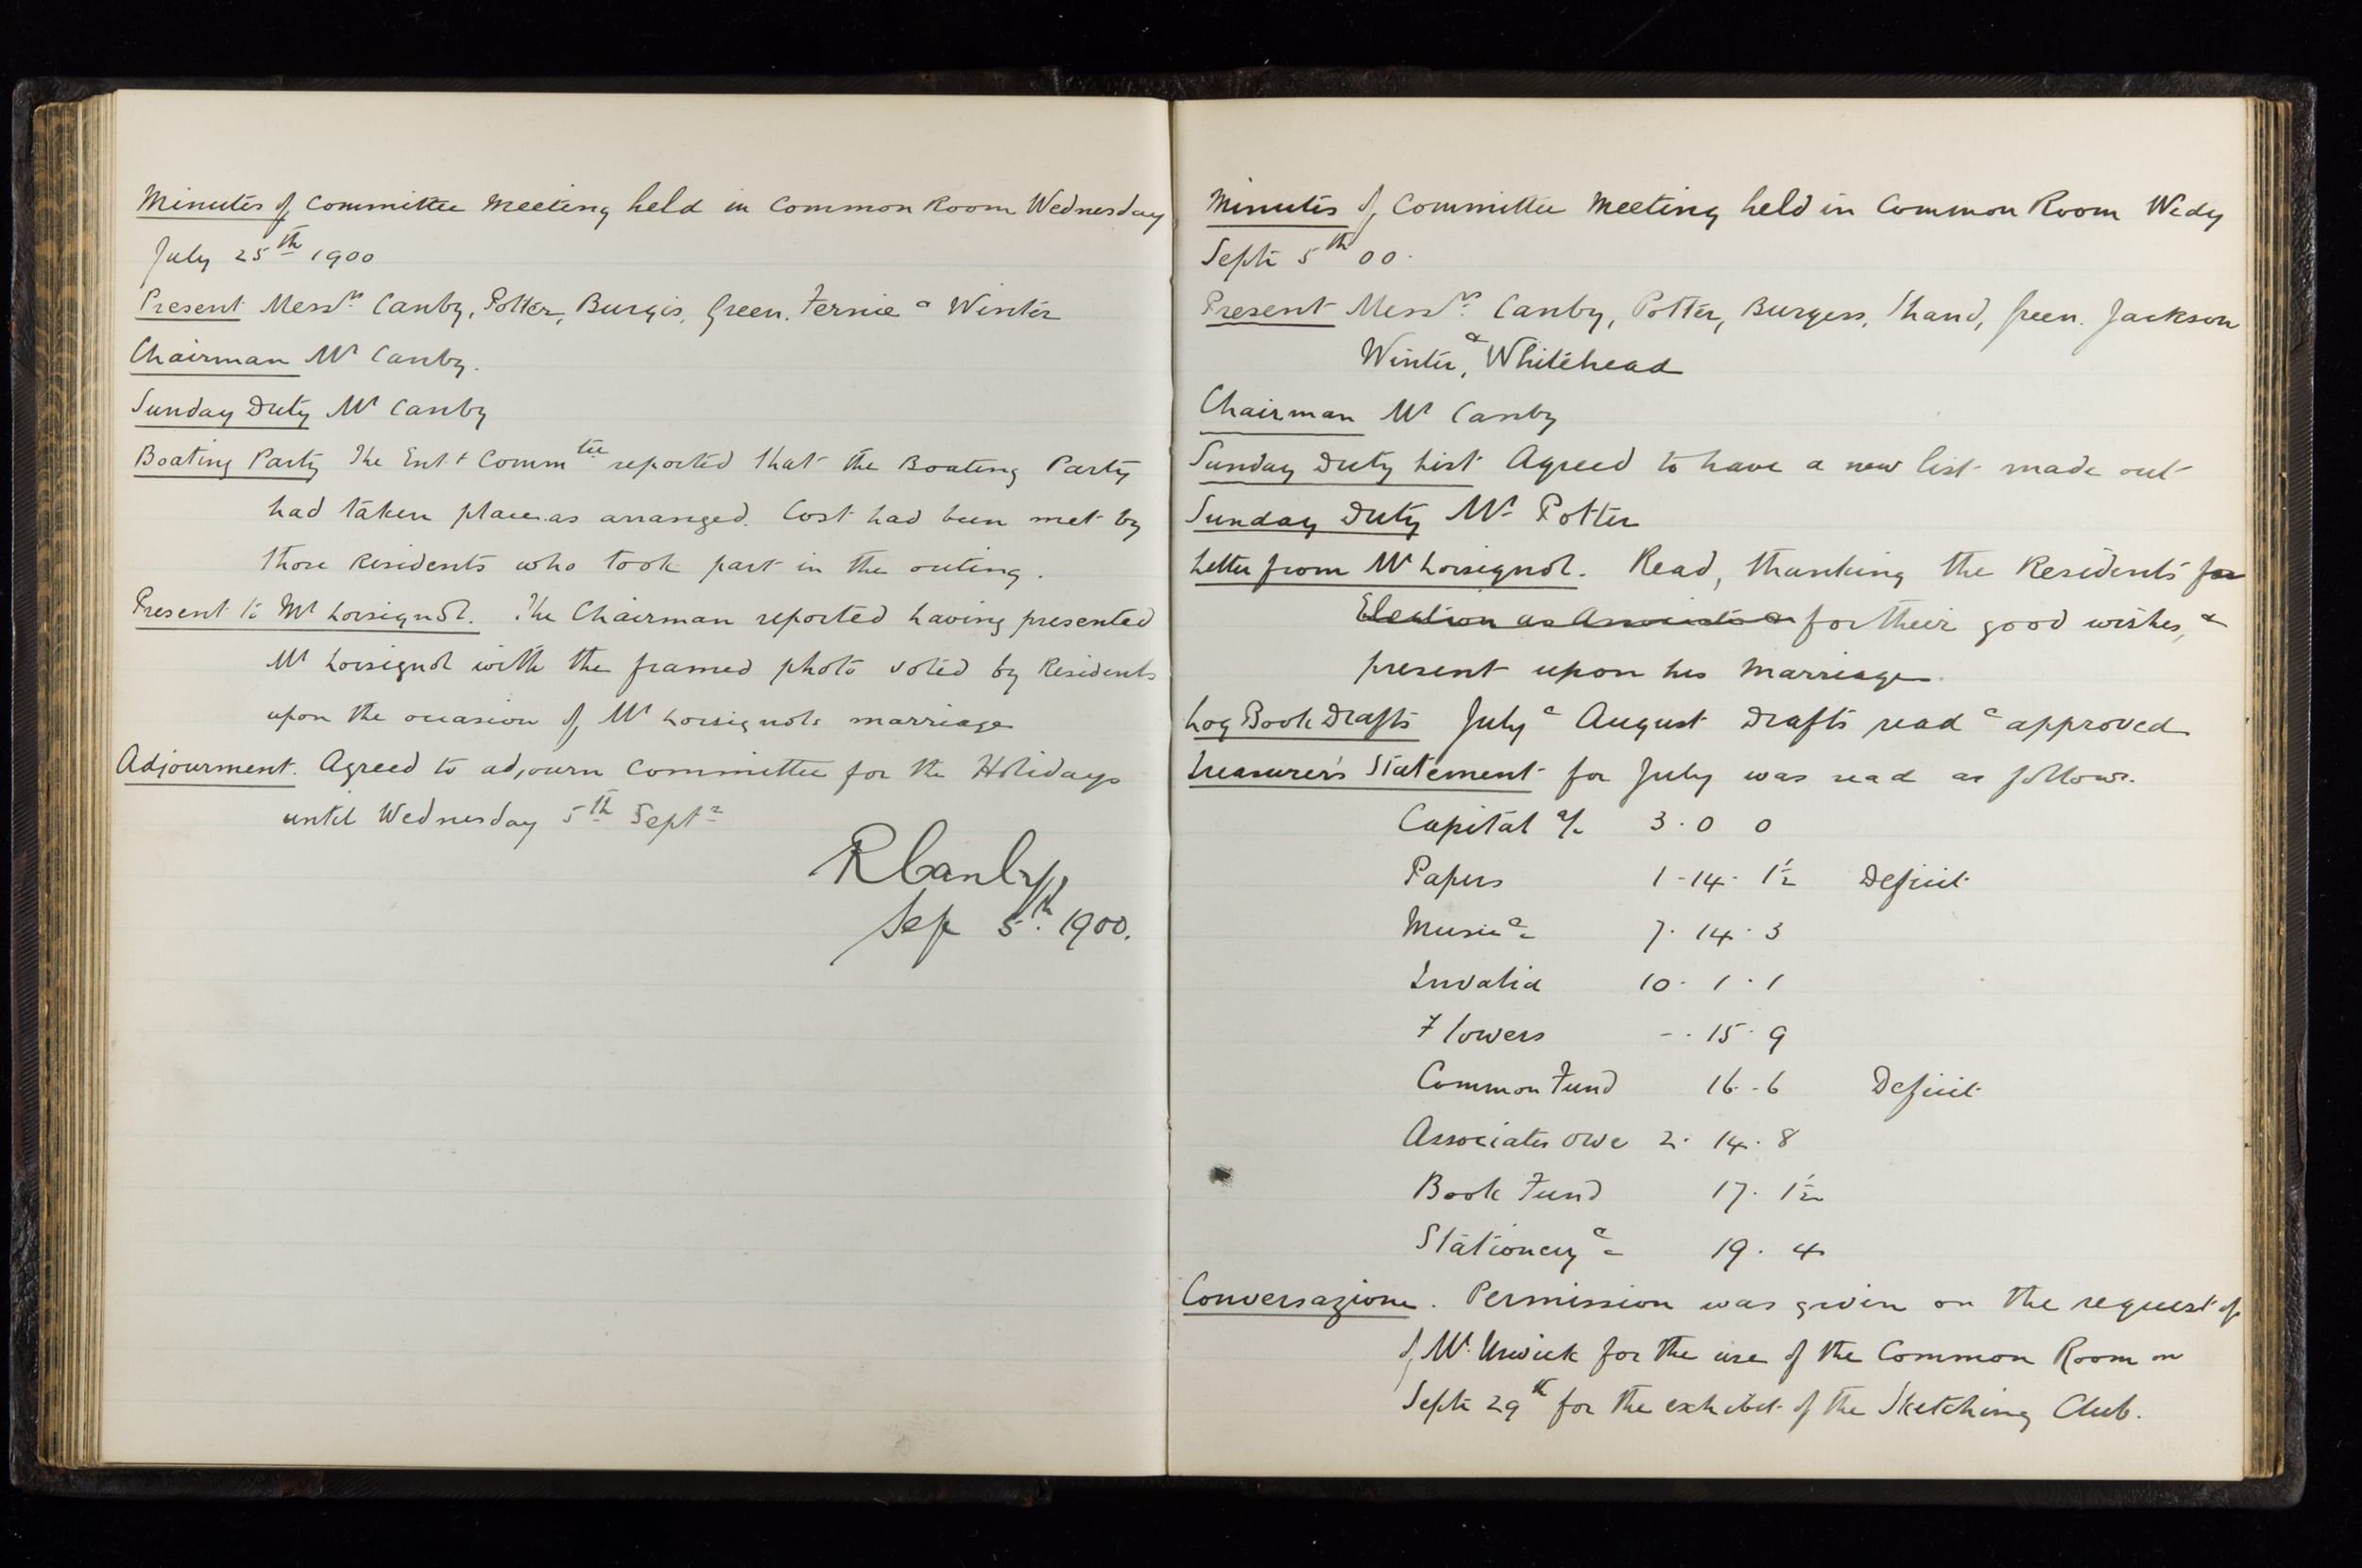 Minutes of Committee Meeting held in Common Room Wednesday
July 25th 1900
Present Messrs Canby, Potter, Burgis, Green, Fernie & Winter
Chairman Mr Canby.
Sunday Duty Mr Canby
Boating Party The Ent t Commtee reported that the Boating Party
had taken place as arranged. Cost had been met by
those Residents who took part in the outing.
Present to Mr Lorsignol. The Chairman reported having presented
Mr Lorsignol with the framed photo voted by Residents
upon the occasion of Mr Lorsignols marriage
Adjourment. Agreed to adjourn Committee for the Holidays
until Wednesday 5th Septr
R Canby
Sep 5th 1900.
Minutes of Committee Meeting held in Common Room Wedy
Septr 5th 00.
Present Messrs Canby, Potter, Burgess, Shand, Green. Jackson
Winter, & Whitehead
Chairman Mr Canby
Sunday Duty List Agreed to have a new list made out
Sunday Duty Mr Potter
Letter from Mr Lorsignol. Read, thanking the Residents for
Election as Associate for their good wishes, &
present upon his marriage.
Log Book Drafts July & August Drafts read & approved
Treasurer's Statement for July was read as follows.
Capital a/c 3. 0 0
Papers 1-14-1½ Deficit
Music &c 7. 14. 3
Invalid 10. 1. 1
Flowers -. 15. 9
Common Fund 16-6 Deficit
Associates owe 2. 14. 8
Book Fund 17. 1½
Stationery &c 19. 4
Conversazione. Permission was given on the request of
of Mr. Urwick for the use of the Common Room on
Septr 29th for the exhibit of the Sketching Club.